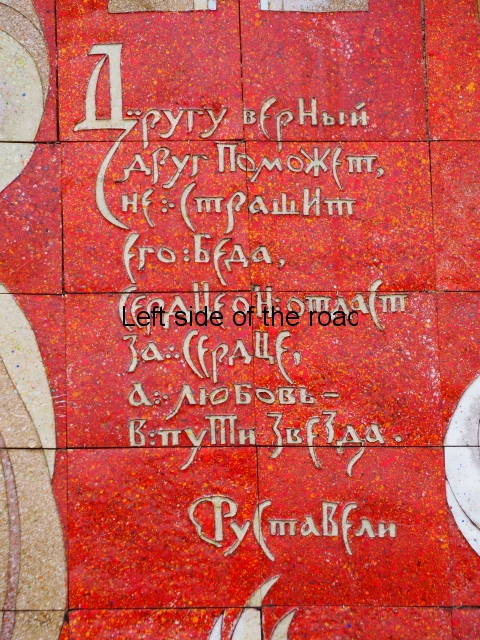 Другу верный
друг поможет,
не страшит
его беда,
сердце он отдаст
Left side of the roac
за сердце,
а любовь-
в пути звезда.
Руставели